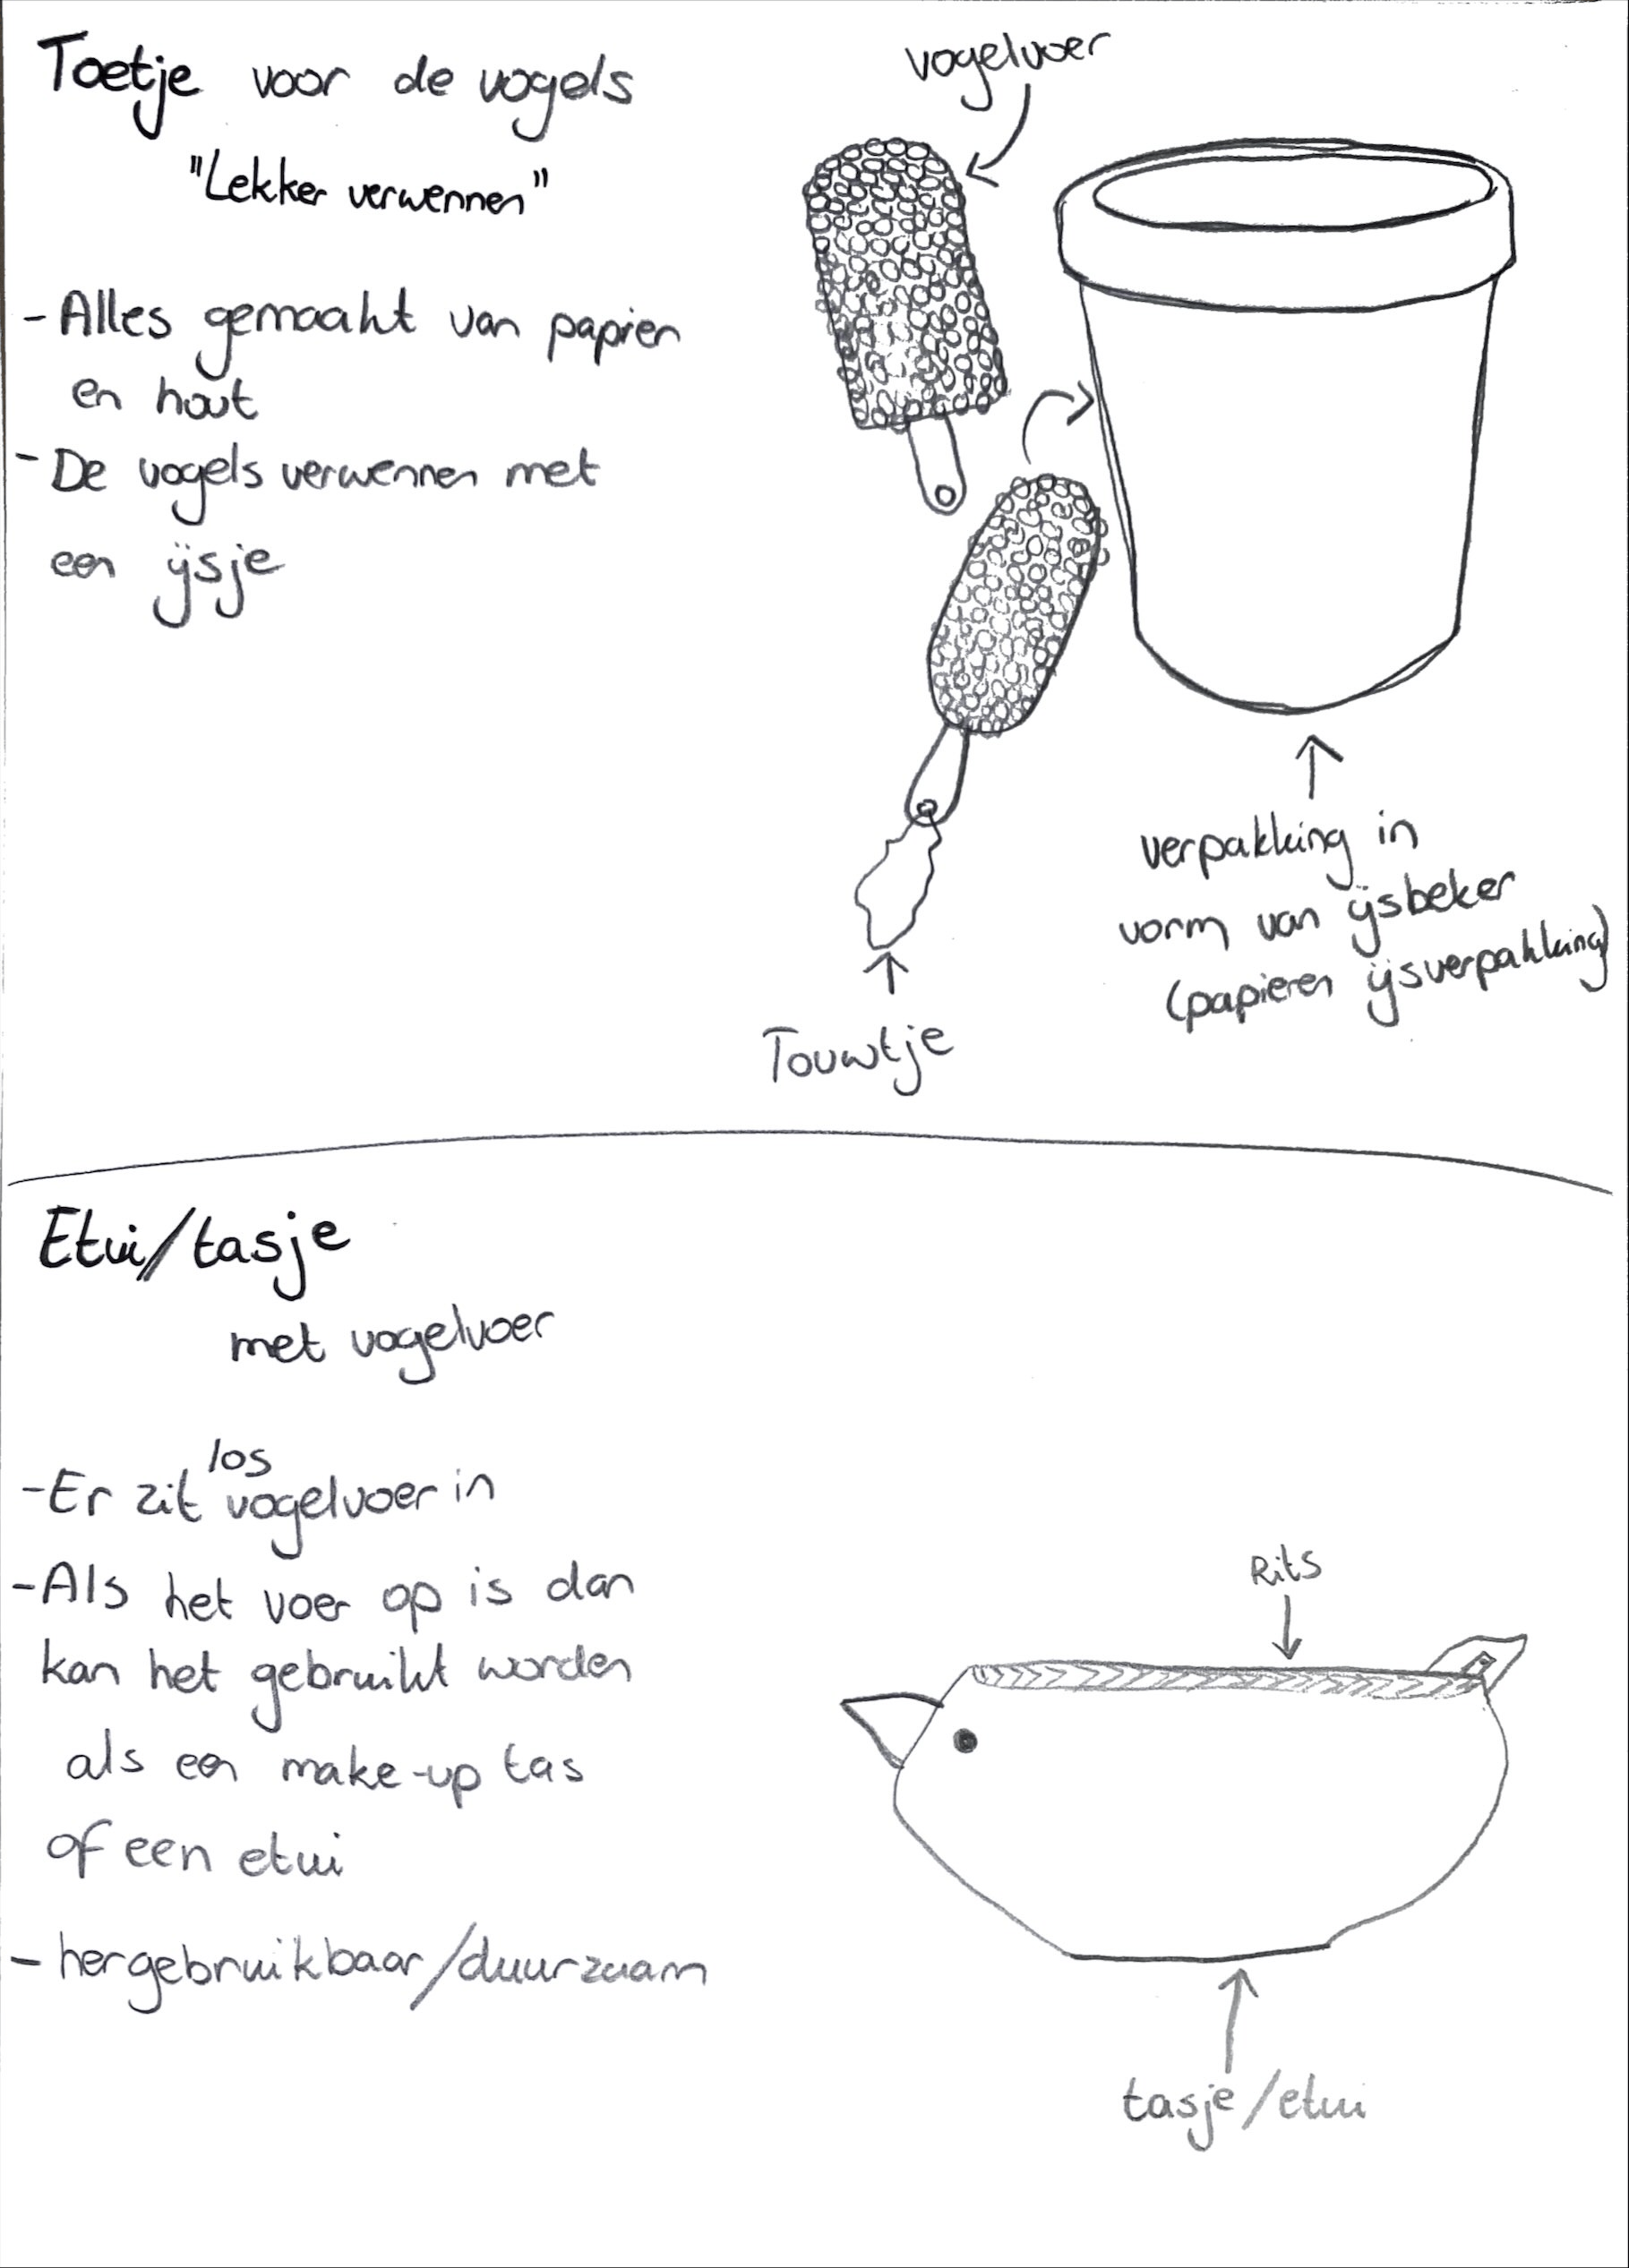 Toetje voor de vogels
"Lekker verwennen"
- Alles gemaakt van papier
en hout
- De vogels verwennen met
een ijsje
vogelvoer
verpakking in
vorm van ijsbeker
(papieren ijsverpakking)
Touwtje
Etui/tasje
met vogelvoer
- Er zit los vogelvoer in
- Als het voer op is dan
kan het gebruikt worden
als een make-up tas
of een etui
- hergebruikbaar/duurzaam
Rits
tasje/etui